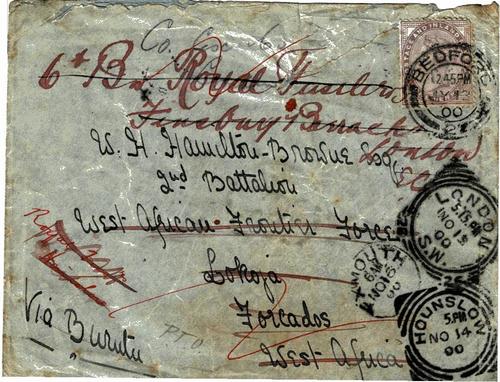 Co.
6th Bn Royal Fusiliers
Finsbury Barracks
London
E.C.
W. H. Hamilton-Browne Esq
2nd Battalion
West African Frontier Force
Lokoja
Forcados
West Africa
Via Burutu
P.T.O
BEDFORD
12.45PM
00
27
LONDON
5.15 PM
NO 13
00
S.W.
MOUTH
NO 16
00
HOUNSLOW
5.PM
NO 14
00